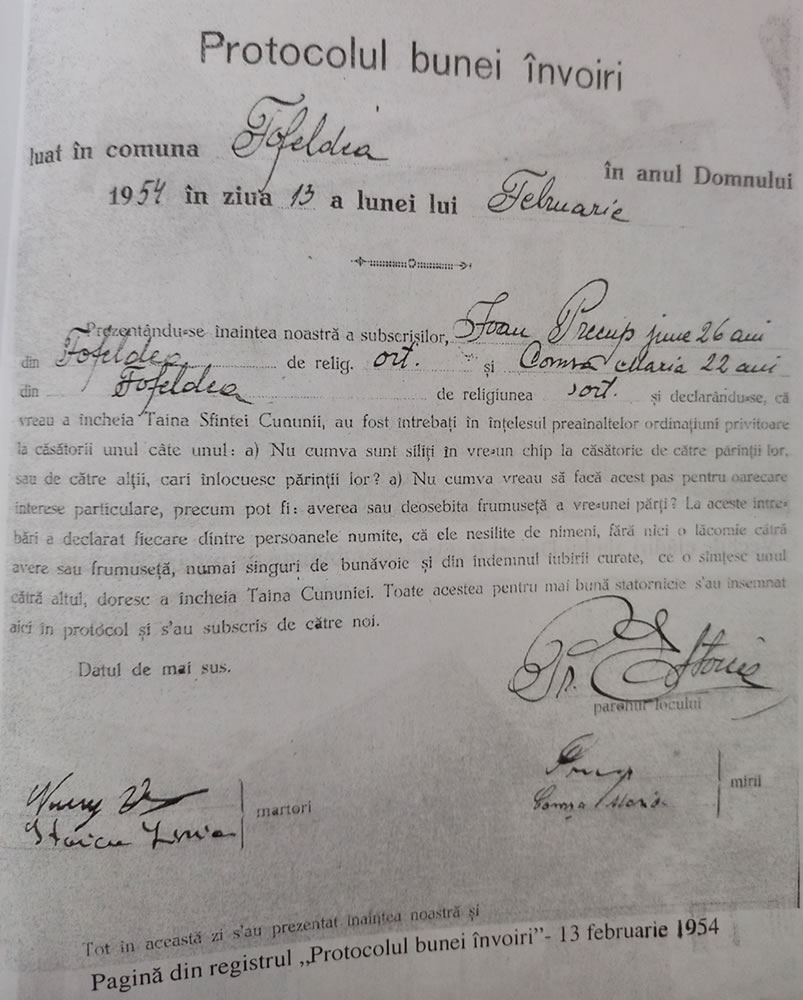 Protocolul bunei învoiri
luat în comuna Fofeldea
în anul Domnului
1954 în ziua 13 a lunei lui Februarie
Prezentându-se înaintea noastră a subscrișilor, Ioan Precup june 26 ani
din Fofeldea de relig. ort. și Comșa Maria 22 ani
din Fofeldea de religiunea ort. și declarându-se, că
vreau a încheia Taina Sfintei Cununii, au fost întrebați in înțelesul preaînaltelor ordinațiuni privitoare
la căsătorii unul câte unul: a) Nu cumva sunt siliți în vre-un chip la căsătorie de către părinții lor,
sau de către alții, cari înlocuesc părinții lor? a) Nu cumva vreau să facă acest pas pentru oarecare
interese particulare, precum pot fi: averea sau deosebita frumuseță a vre-unei părți? La aceste între-
bări a declarat fiecare dintre persoanele numite, că ele nesilite de nimeni, fără nici o lăcomie cătră
avere sau frumuseță, numai singuri de bunăvoie și din îndemnul iubirii curate, ce o simțesc unul
cătră altul, doresc a încheia Taina Cununiei. Toate acestea pentru mai bună statornicie s'au însemnat
aici în protocol și s'au subscris de către noi.
Datul de mai sus.
Pr.
parohul locului
mirii
Comșa Maria
martori
Stoicu
Tot în această zi s'au prezentat înaintea noastră și
Pagină din registrul „Protocolul bunei învoiri”- 13 februarie 1954